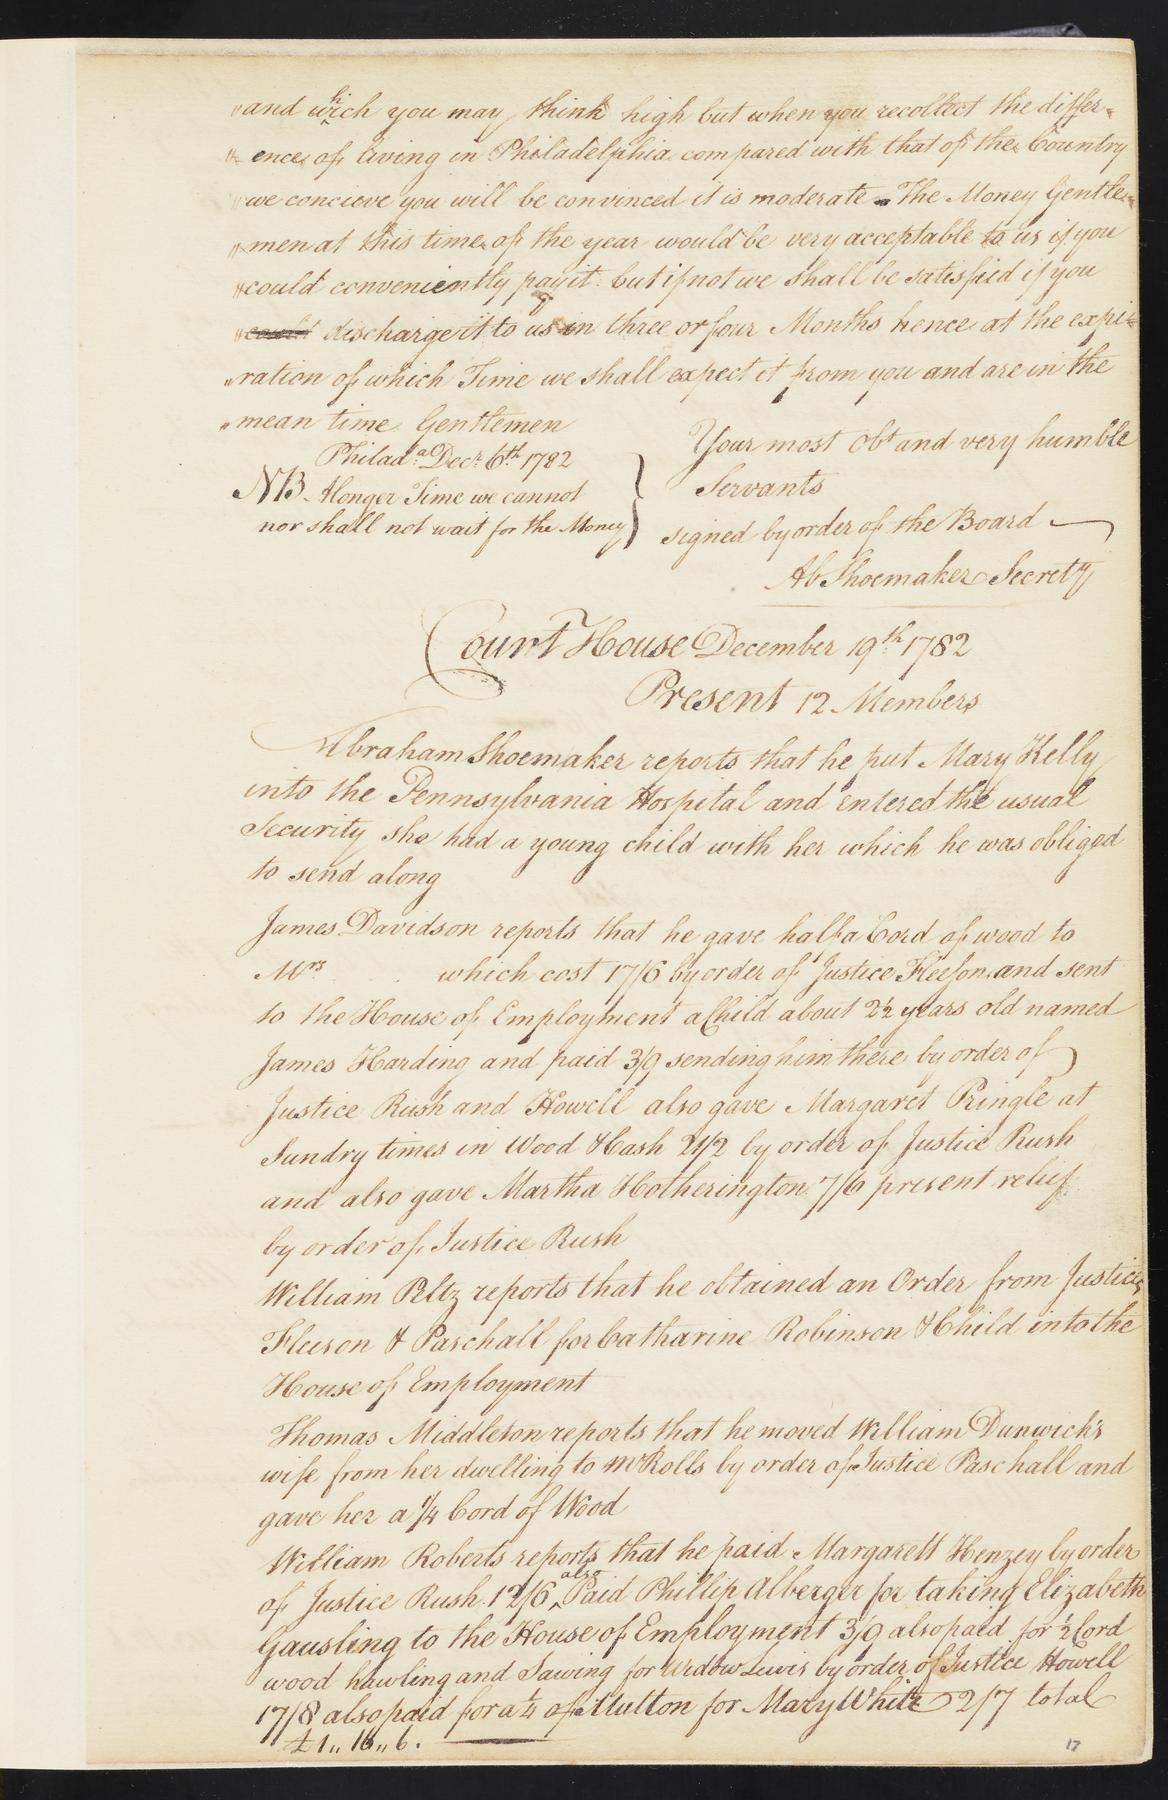 "and which you may think high but when you recollect the differ=
"= ence of living in Philadelphia compared with that of the Country
"we concieve you will be convinced it is moderate - The Money Gentle=
"men at this time of the year would be very acceptable to us if you
"could conveniently pay it. but if not we shall be satisfied if you
"could discharge it to us in three or four Months hence at the expi=
"ration of which Time we shall expect it from you and are in the
"mean time Gentlemen
Your most Obt and very humble
Philada Decr 6th 1782
Servants
NB. Alonger Time we cannot
nor shall not wait for the Money }
signed by order of the Board
Ab Shoemaker Secrety
Court House December 19th 1782
Present 12 Members
Abraham Shoemaker reports that he put Mary Kelly
into the Pennsylvania Hospital and entered the usual
Security she had a young child with her which he was obliged
to send along
James Davidson reports that he gave half a Cord of wood to
Mrs which cost 17/6 by order of Justice Fleeson and sent
to the House of Employment a Child about 2½ years old named
James Harding and paid 3/9 sending him there by order of
Justice Rush and Howell also gave Margaret Pringle at
Sundry times in Wood & Cash 21/2 by order of Justice Rush
and also gave Martha Hotherington 7/6 present relief
by order of Justice Rush
William Peltz reports that he obtained an Order from Justices
Fleeson & Paschall for Catharine Robinson & Child into the
House of Employment
Thomas Middleton reports that he moved William Dunwick's
wife from her dwelling to Mr Rolls by order of Justice Paschall and
gave her a ¼ Cord of Wood
William Roberts reports that he paid Margarett Henzey by order
of Justice Rush 12/6 also Paid Phillip Alberger for taking Elizabeth
Gausling to the House of Employment 3/9 also paid for ½ Cord
wood hawling and Sawing for Widow Lewis by order of Justice Howell
17/8 also paid for a ¼ of Mutton for Mary White 2/7 total
£1,, 16,, 6.
17